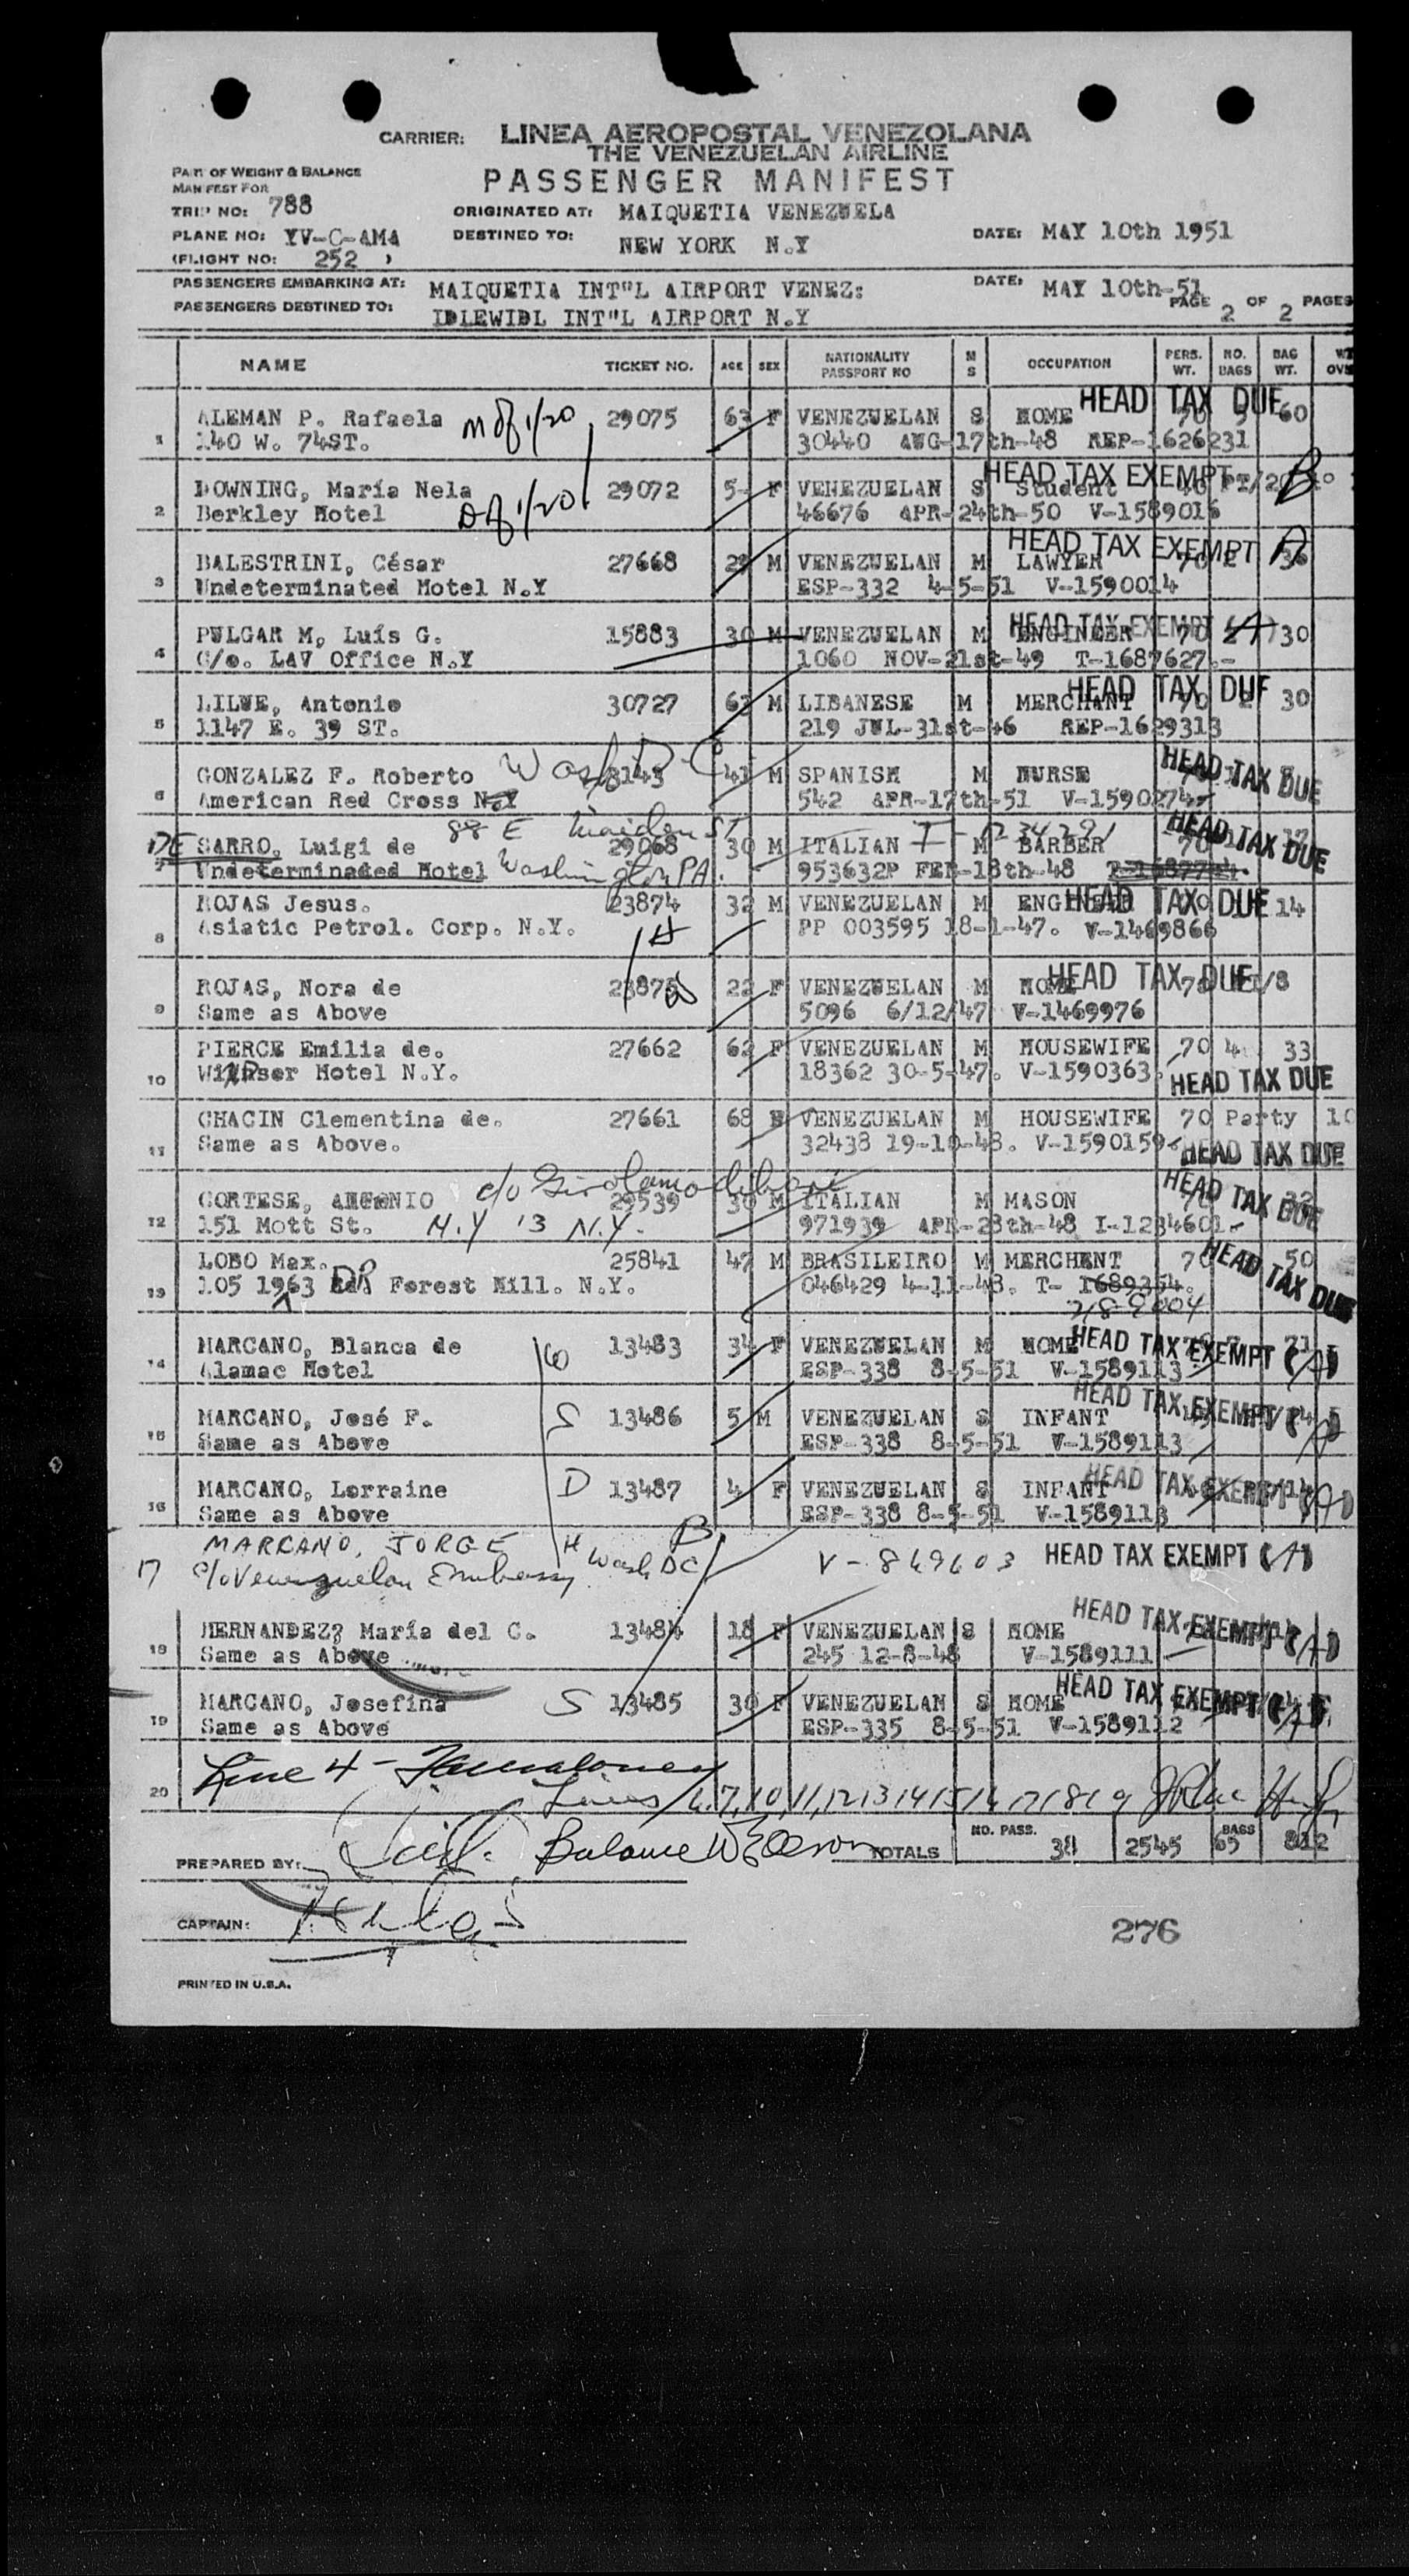 CARRIER: LINEA AEROPOSTAL VENEZOLANA
THE VENEZUELAN AIRLINE
PASSENGER MANIFEST
PART OF WEIGHT & BALANCE
MANIFEST FOR
TRIP NO: 788
ORIGINATED AT: MAIQUETIA VENEZUELA
PLANE NO: YV-C-AMA
DESTINED TO: NEW YORK N.Y
DATE: MAY 10th 1951
(FLIGHT NO: 252 )
PASSENGERS EMBARKING AT: MAIQUETIA INT"L AIRPORT VENEZ:
DATE: MAY 10th-51
PAGE 2 OF 2 PAGES
PASSENGERS DESTINED TO: IDLEWIDL INT"L AIRPORT N.Y
NAME TICKET NO. AGE SEX NATIONALITY PASSPORT NO M S OCCUPATION PERS. WT. NO. BAGS BAG WT. WT OVS
ALEMAN P. Rafaela 29075 63 F VENEZUELAN S HOME HEAD TAX DUE 60
1 140 W. 74ST. 30440 AUG-17th-48 REP-1626231
DOWNING, María Nela 29072 5- F VENEZUELAN S Student HEAD TAX EXEMPT B
2 Berkley Hotel 46676 APR-24th-50 V-1589016
BALESTRINI, César 27668 29 M VENEZUELAN M LAWYER 70 HEAD TAX EXEMPT A 36
3 Undeterminated Hotel N.Y ESP-332 4-5-51 V-1590014
PULGAR M, Luís G. 15883 30 M VENEZUELAN M ENGINEER 70 HEAD TAX EXEMPT (A) 30
4 C/o. LAV Office N.Y 1060 NOV-21st-49 T-1687627.-
LILUE, Antonio 30727 63 M LIBANESE M MERCHANT 70 HEAD TAX DUE 30
5 1147 E. 39 ST. 219 JUL-31st-46 REP-1629313
GONZALEZ F. Roberto Wash D.C 41 M SPANISH M NURSE HEAD TAX DUE
6 American Red Cross N.Y 542 APR-17th-51 V-1590274-
88 E Maiden ST
DE SARRO, Luigi de 29068 30 M ITALIAN M BARBER 70 HEAD TAX DUE 17
7 Undeterminaded Hotel Washington PA. 953632P FEB-18th-48
ROJAS Jesus. 23874 32 M VENEZUELAN M ENGINEER HEAD TAX DUE 14
8 Asiatic Petrol. Corp. N.Y. H PP 003595 18-1-47. V-1469866
ROJAS, Nora de 23875 22 F VENEZUELAN M HOME 70 HEAD TAX DUE
9 Same as Above 5096 6/12/47 V-1469976
PIERCE Emilia de. 27662 62 F VENEZUELAN M HOUSEWIFE 70 4 33
10 Hotel N.Y. 18362 30-5-47. V-1590363. HEAD TAX DUE
CHACIN Clementina de. 27661 68 VENEZUELAN M HOUSEWIFE 70 Party 10
11 Same as Above. 32438 19-10-48. V-1590159- HEAD TAX DUE
CORTESE, ANTONIO c/o 29539 30 M ITALIAN M MASON HEAD TAX DUE 32
12 151 Mott St. N.Y 13 N.Y. 971939 APR-28th-48 I-1234601-
LOBO Max. 25841 47 M BRASILEIRO M MERCHENT 70 HEAD TAX DUE 50
13 105 1963 Rd. DR Forest Hill. N.Y. 046429 4-11-48. T- 1689354.
MARCANO, Blanca de 13483 34 F VENEZUELAN M HOME HEAD TAX EXEMPT (A)
14 Alamac Hotel ESP-338 8-5-51 V-1589113
MARCANO, José F. S 13486 5 M VENEZUELAN S INFANT HEAD TAX EXEMPT (A)
15 Same as Above ESP-338 8-5-51 V-1589113
MARCANO, Lorraine D 13487 4 F VENEZUELAN S INFANT HEAD TAX EXEMPT (A)
16 Same as Above ESP-338 8-5-51 V-1589113
MARCANO, JORGE H B
17 c/o Venezuelan Embassy Wash DC V-849603 HEAD TAX EXEMPT (A)
HERNANDEZ, María del C. 13484 18 F VENEZUELAN S HOME HEAD TAX EXEMPT (A)
18 Same as Above 245 12-8-48 V-1589111
MARCANO, Josefina S 13485 30 F VENEZUELAN S HOME HEAD TAX EXEMPT (A)
19 Same as Above ESP-335 8-5-51 V-1589112
Line 4 -
20 Lines 6,7,10,11,12 13 14 15 16 17 18 19
Balance
PREPARED BY: TOTALS NO. PASS. 38 2545 BAGS 65 812
CAPTAIN:
276
PRINTED IN U.S.A.